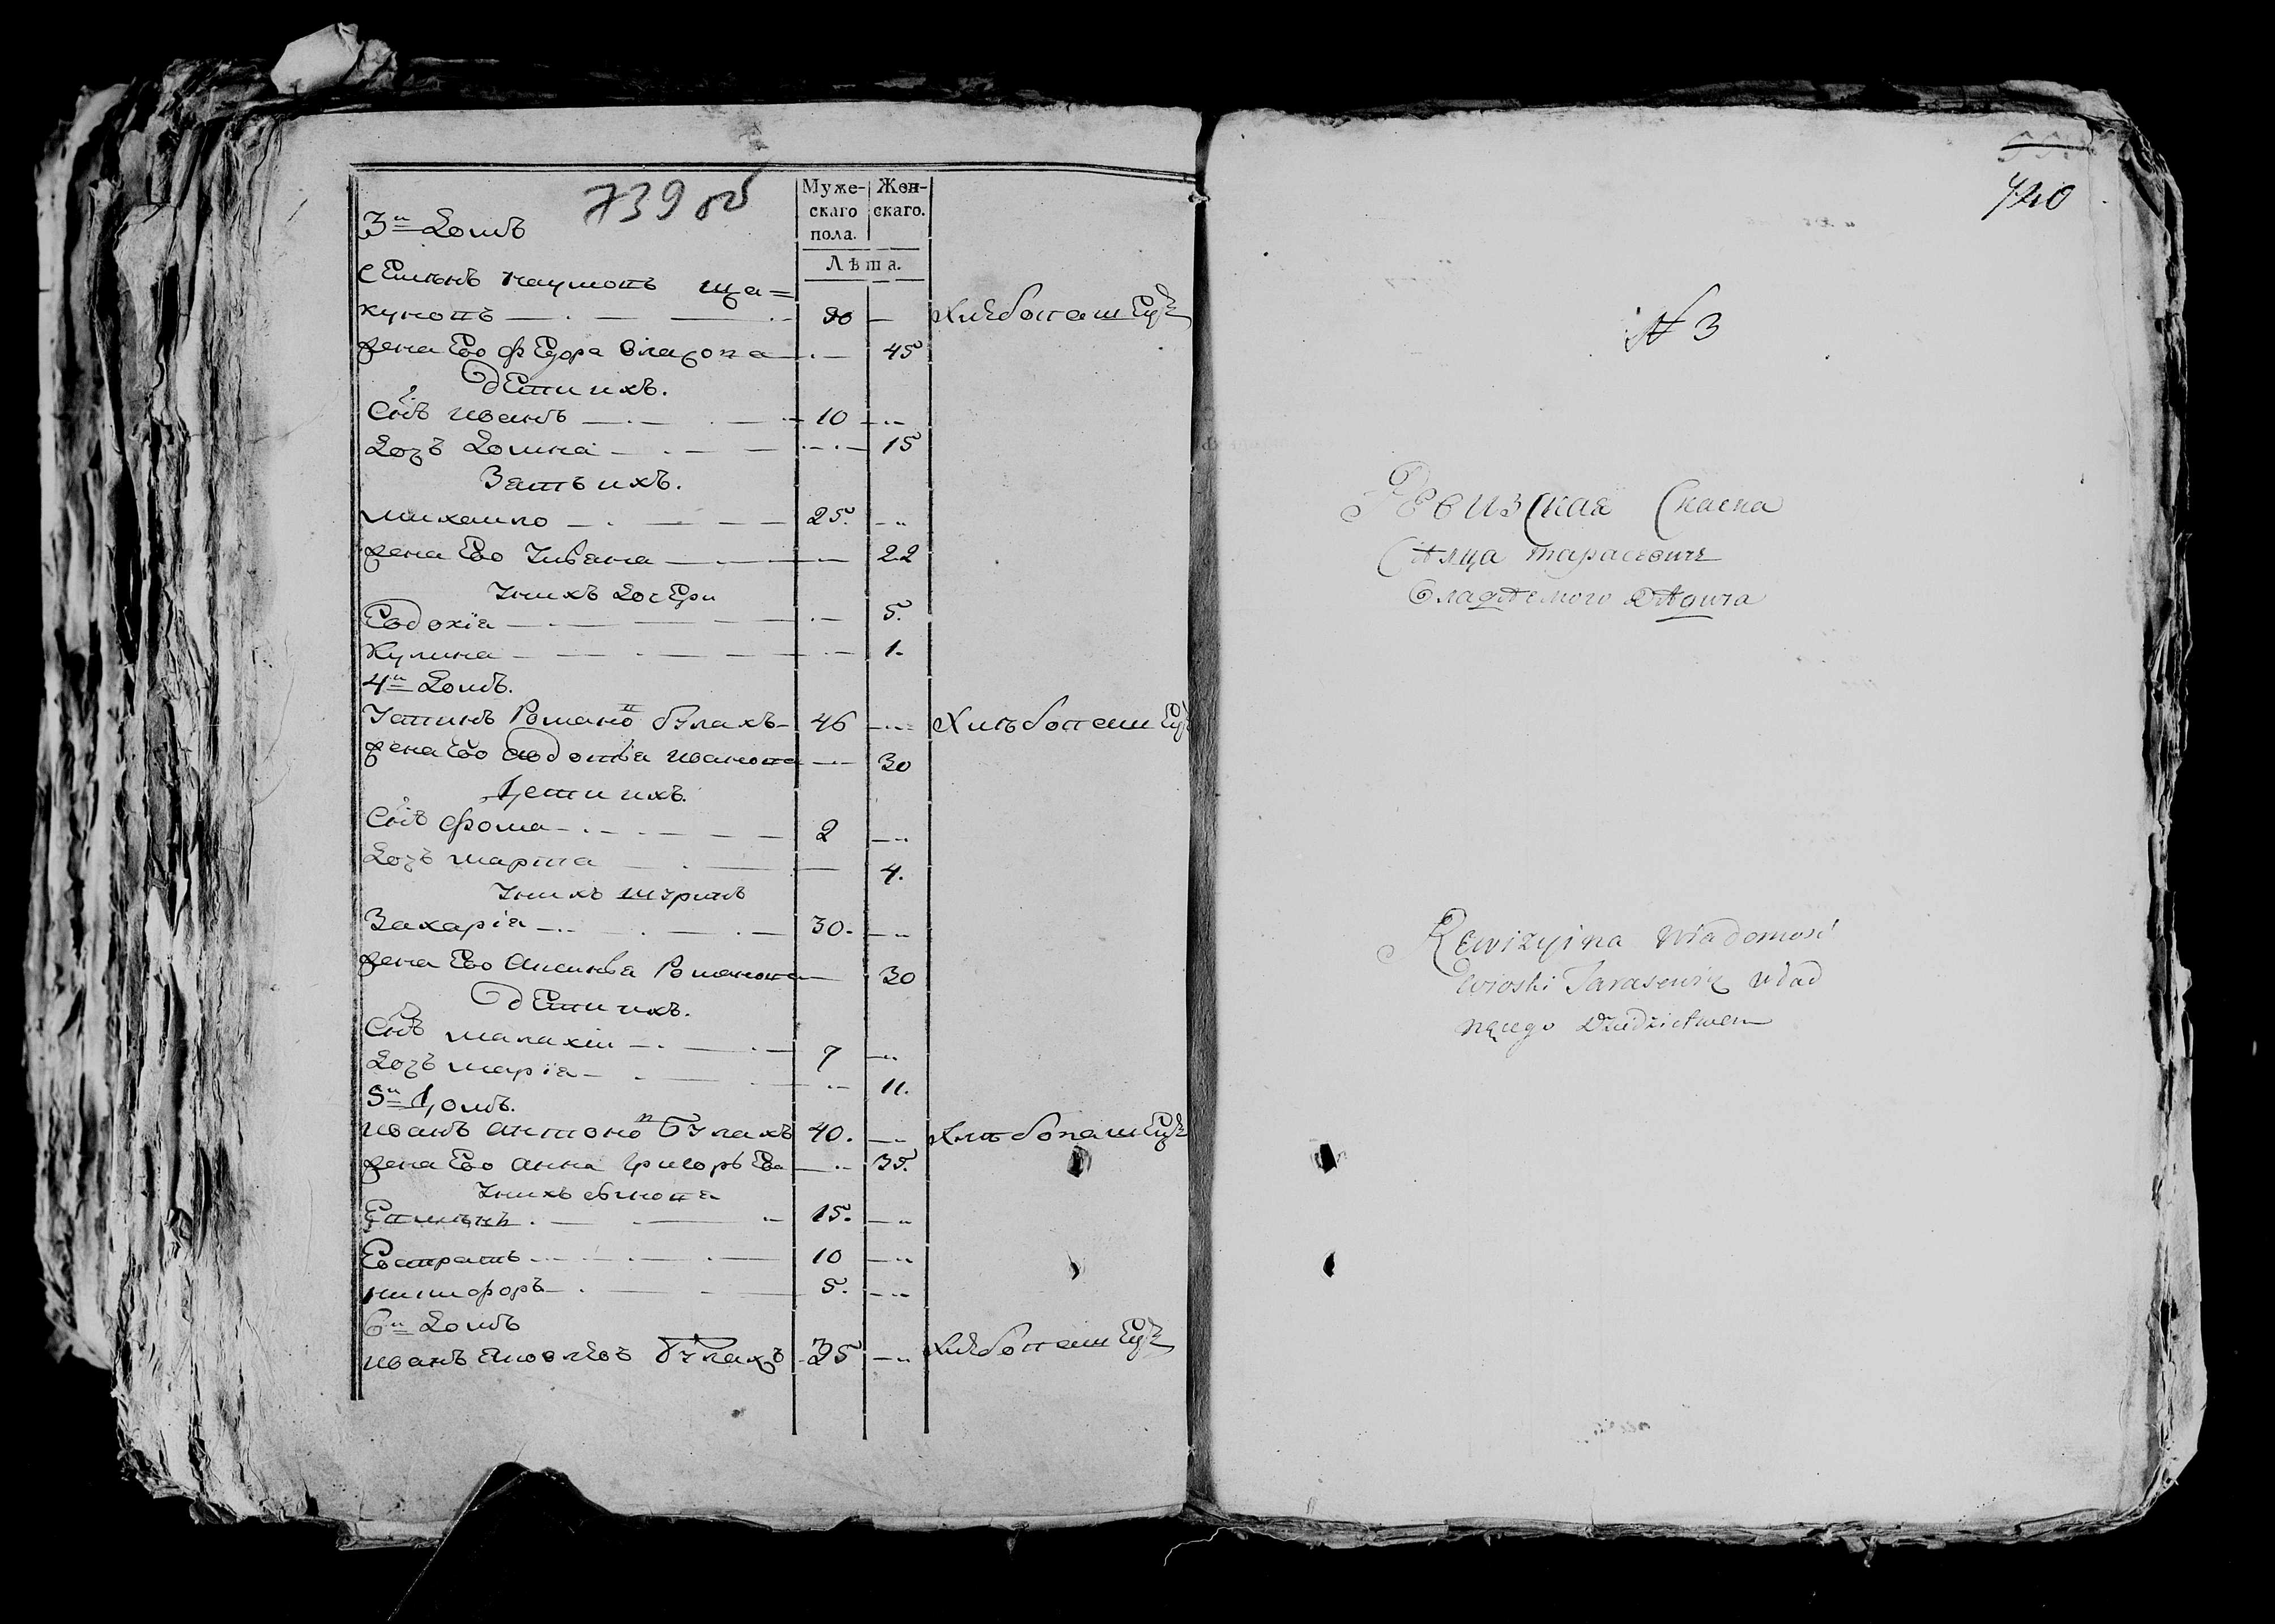 739 об
Муже-
скаго
пола.
Жен-
скаго.
Лѣта.
3й Домъ
Семенъ Наумовъ Ща=
куновъ 30 — хлебопашецъ
жена Ево Федора Власова 45
дети ихъ.
Снъ иванъ 10
Доч Домна 15
Зять ихъ.
михаило 25.
жена Ево Улвяна 22
Уних дочери
Евдокіа 5.
Кулина 1.
4й Домъ.
Устинъ Романовъ булахъ 46 Хлѣбопашецъ
жена Ево авдотья иванова 30
Дети ихъ.
Снъ фома 2
Доч марта 4.
Унихъ шуринъ
Захаріа 30.
жена Ево Аксинья Романова 30
дети ихъ.
Снъ малахіи 7
Доч маріа 11.
5й Домъ.
иванъ антоновъ Булахъ 40. Хлѣбопашецъ
жена Ево анна григорьева 35.
Унихъ сынова
15.
Евстратъ 10
никифоръ 5.
6й Домъ
иванъ яковлевъ Булахъ 35 хлебопашецъ
740
№ 3
Ревизская Скаска
Сѣлца тарасевичъ
владѣемого дѣдича
Rewizyjna Wiadomość
wioski Tarasewicz wład
nącego Dziedzictwem